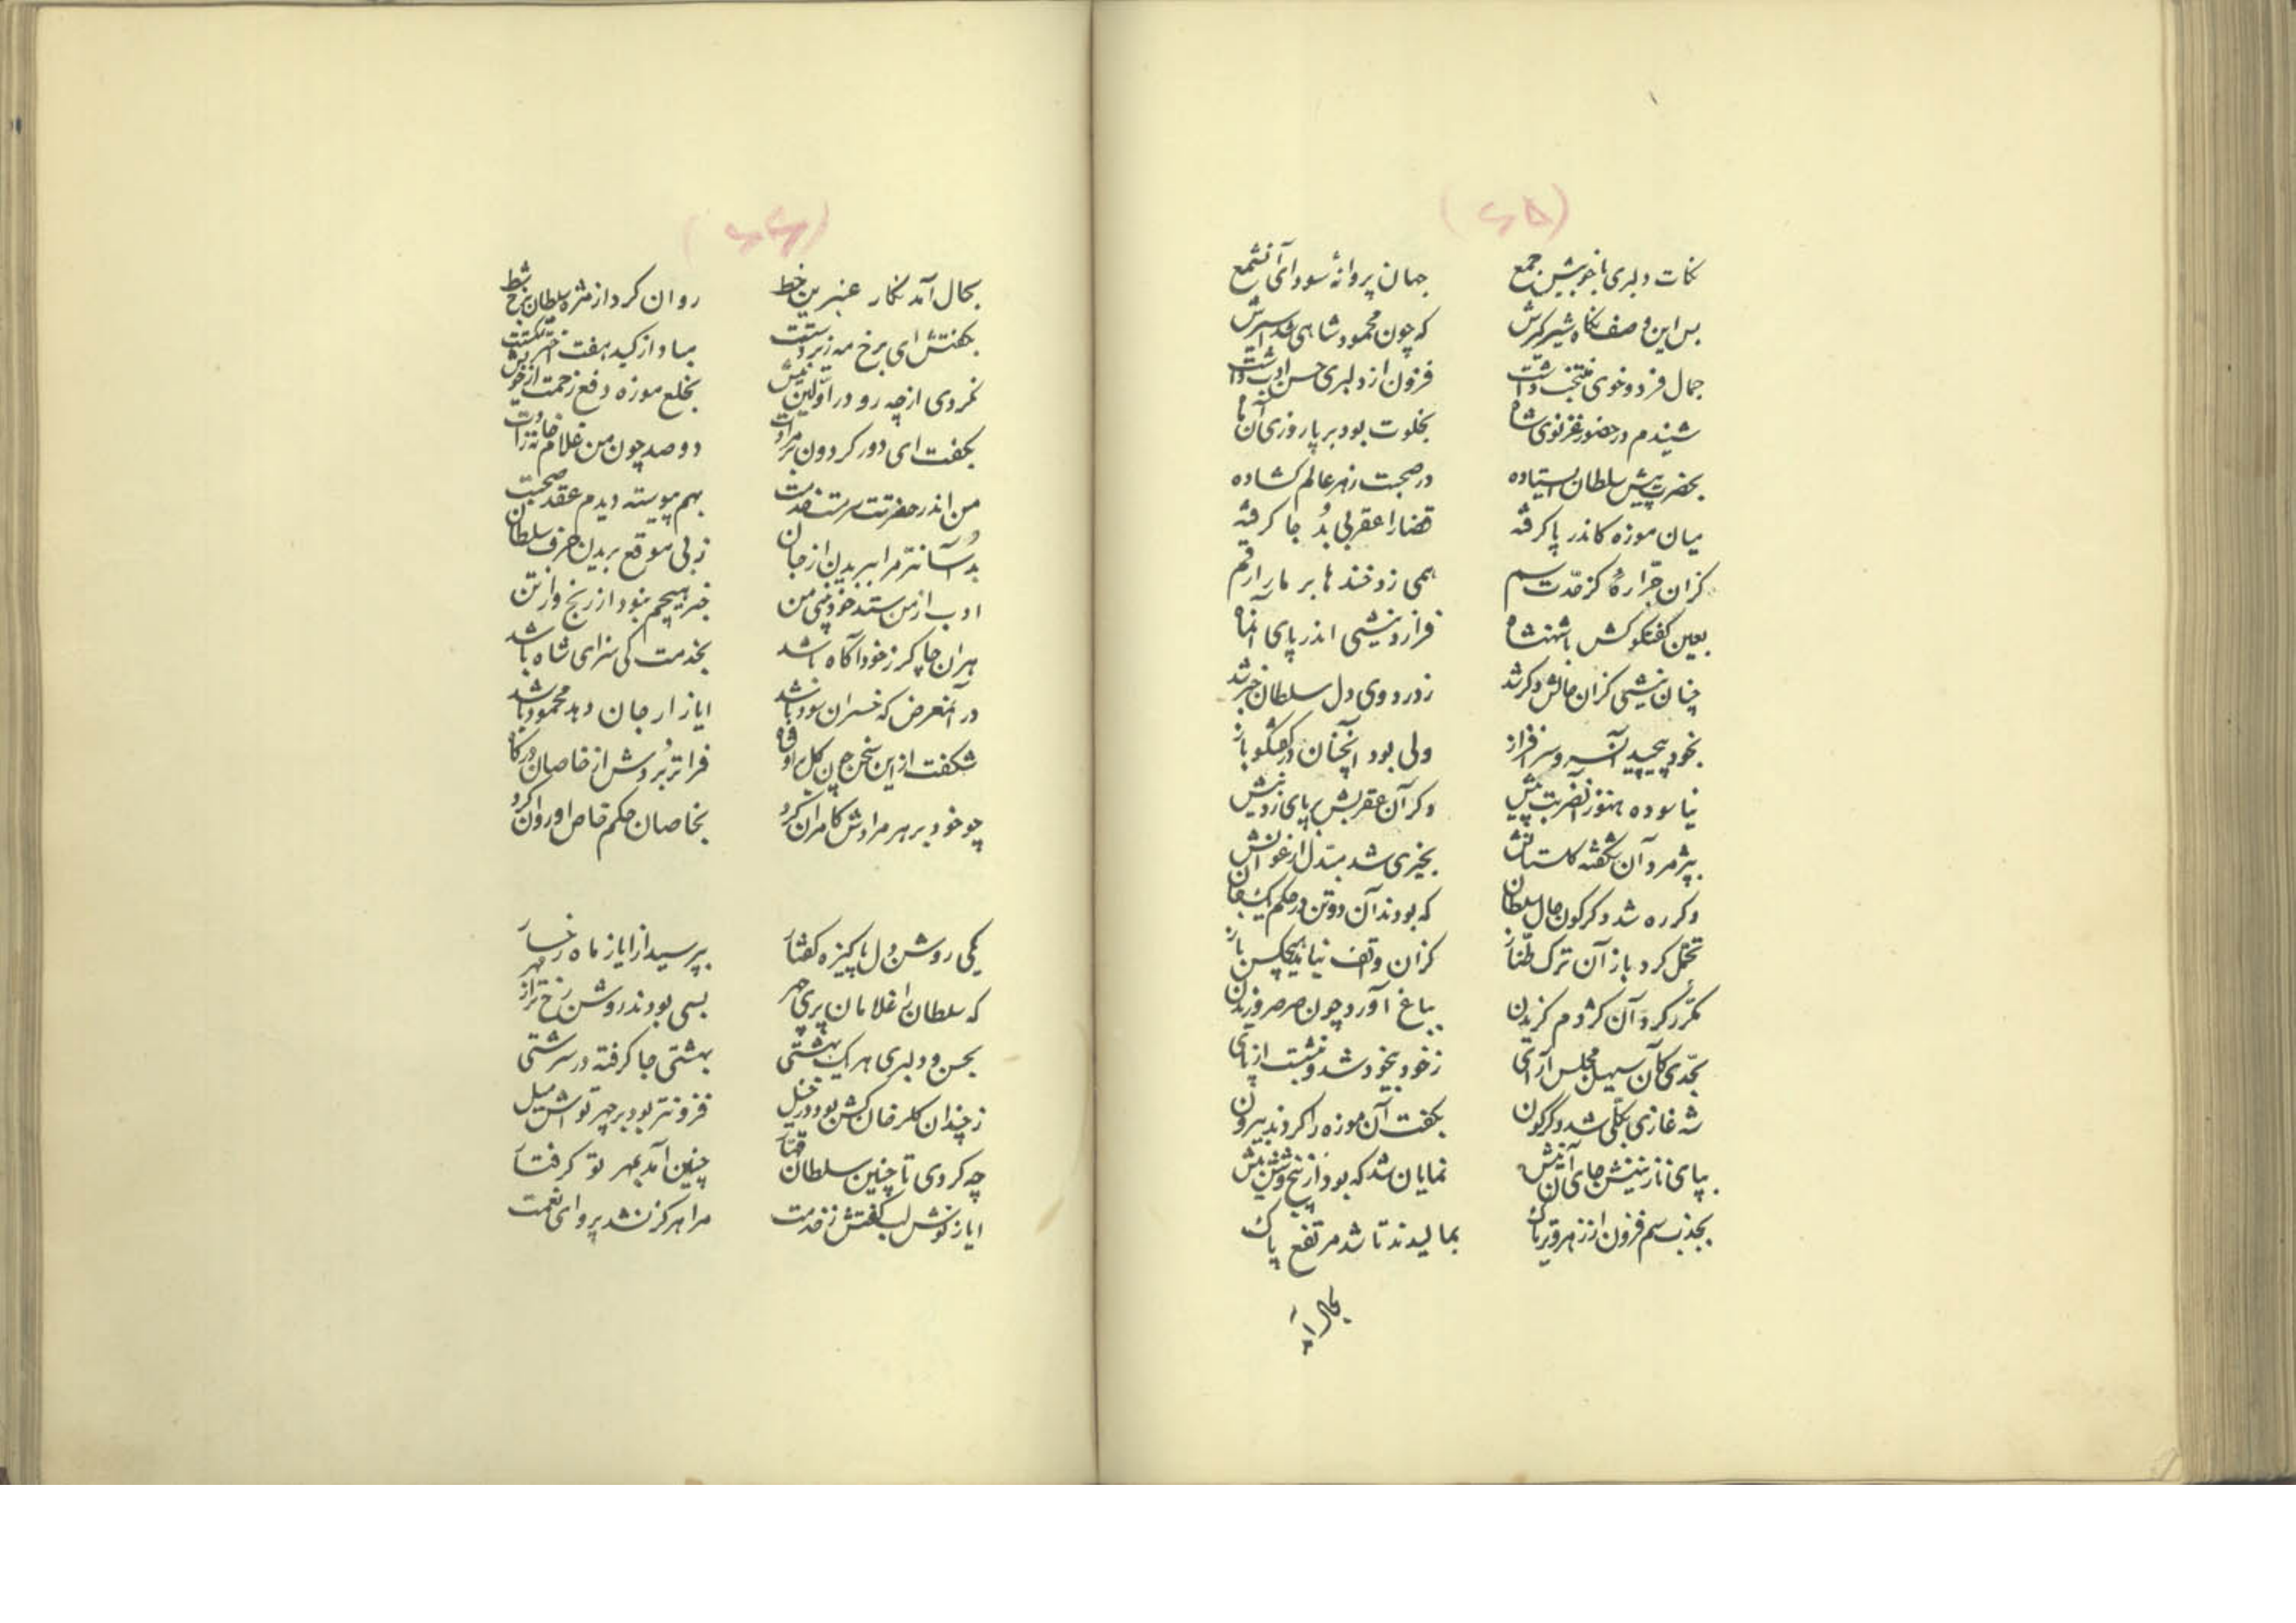 (۶۵)
نکات دلبری با خویش جمع جهان پروانهٔ سودای آنشمع
بس این وصف نگاه شیرگیرش که چون محمود شاهی شد اسیرش
جمال فرد و خوی منتخب داشت فزون از دلبری حسن ادب داشت
شنیدم در حضور غزنوی شاه بخلوت بود بر پا روزی آن ماه
بحضرت پیش سلطان ایستاده در صحبت ز هر عالم گشاده
میان موزه کاندر پا گرفته قضا را عقربی بُد جا گرفته
کزان جرّاره کز حدّت سم همی زد خندها بر مار ارقم
بعین گفتگوش با شهنشاه فرازد نیشی اندر پای آنماه
چنان نیشی کزان حالش دگر شد ز درد وی دل سلطان خبر شد
بخود پیچید آن سرو سرفراز ولی بود آنچنان در گفتگو باز
نیاسوده هنوز از ضربت پیش دگر آن عقربش بر پای زد نیش
بپژمرد آن شگفته گلستانش بخیری شد مبدّل ارغوانش
دگر ره شد دگرگون حال سلطان که بودند آن دو تن در حکم یک جان
تحمّل کرد باز آن ترک طنّاز کزان واقف نیابد هیچکس باز
مکرّر کرد آن کژدم گزیدن بباغ آورد چون صرصر وزیدن
بحدّی کآن سهیل مجلس آرای ز خود بیخود شد و بنشست از پای
شه غازی بکلّی شد دگرگون بگفت آن موزه را کردند بیرون
بپای نازنینش جای آن نیش نمایان شد که بود از پنج و شش بیش
بجذب سم فزون از زهر و تریاک بمالیدند تا شد مرتفع پاک
بحال آمد
(۶۶)
بحال آمد نگار عنبرین خط روان کرد از مژه سلطان برخ شط
بگفتش ای برخ مه زیر دستت مباد از کید هفت اختر شکستت
نکردی از چه رو در اوّلین نیش بخلع موزه دفع زحمت از خویش
بگفت ای دور گردون بر مرادت دو صد چون من غلام خانه زادت
من اندر حضرتت سرمست خدمت بهم پیوسته دیدم عقد صحبت
بُد آسانتر مرا ببریدن از جان ز بی موقع بریدن حرف سلطان
ادب از من ستد خود بینی من خبر هیچم نبود از رنج وز تن
هر آن چاکر ز خود آگاه باشد بخدمت کی سزای شاه باشد
در آنمعرض که خسران سود باشد ایاز ار جان دهد محمود باشد
شگفت از این سخن چون گل فرا تر بردش از خاصان درگاه
چو خود بر هر مرادش کامران کرد بخاصان حکم خاص او روان کرد
یکی روشن دل پاکیزه گفتار بپرسید از ایاز ماه رخسار
که سلطان را غلامان پری چهر بسی بودند روشن رخ تر از مهر
بحسن و دلبری هر یک بهشتی بهشتی جا گرفته در سرشتی
ز چندان گلرخان کش بود در خیل فزونتر بود بر چهر تو اش میل
چه کردی تا چنین سلطان قهّار چنین آمد بمهر تو گرفتار
ایاز نوش لب گفتش ز خدمت مرا هرگز نشد پروای نعمت